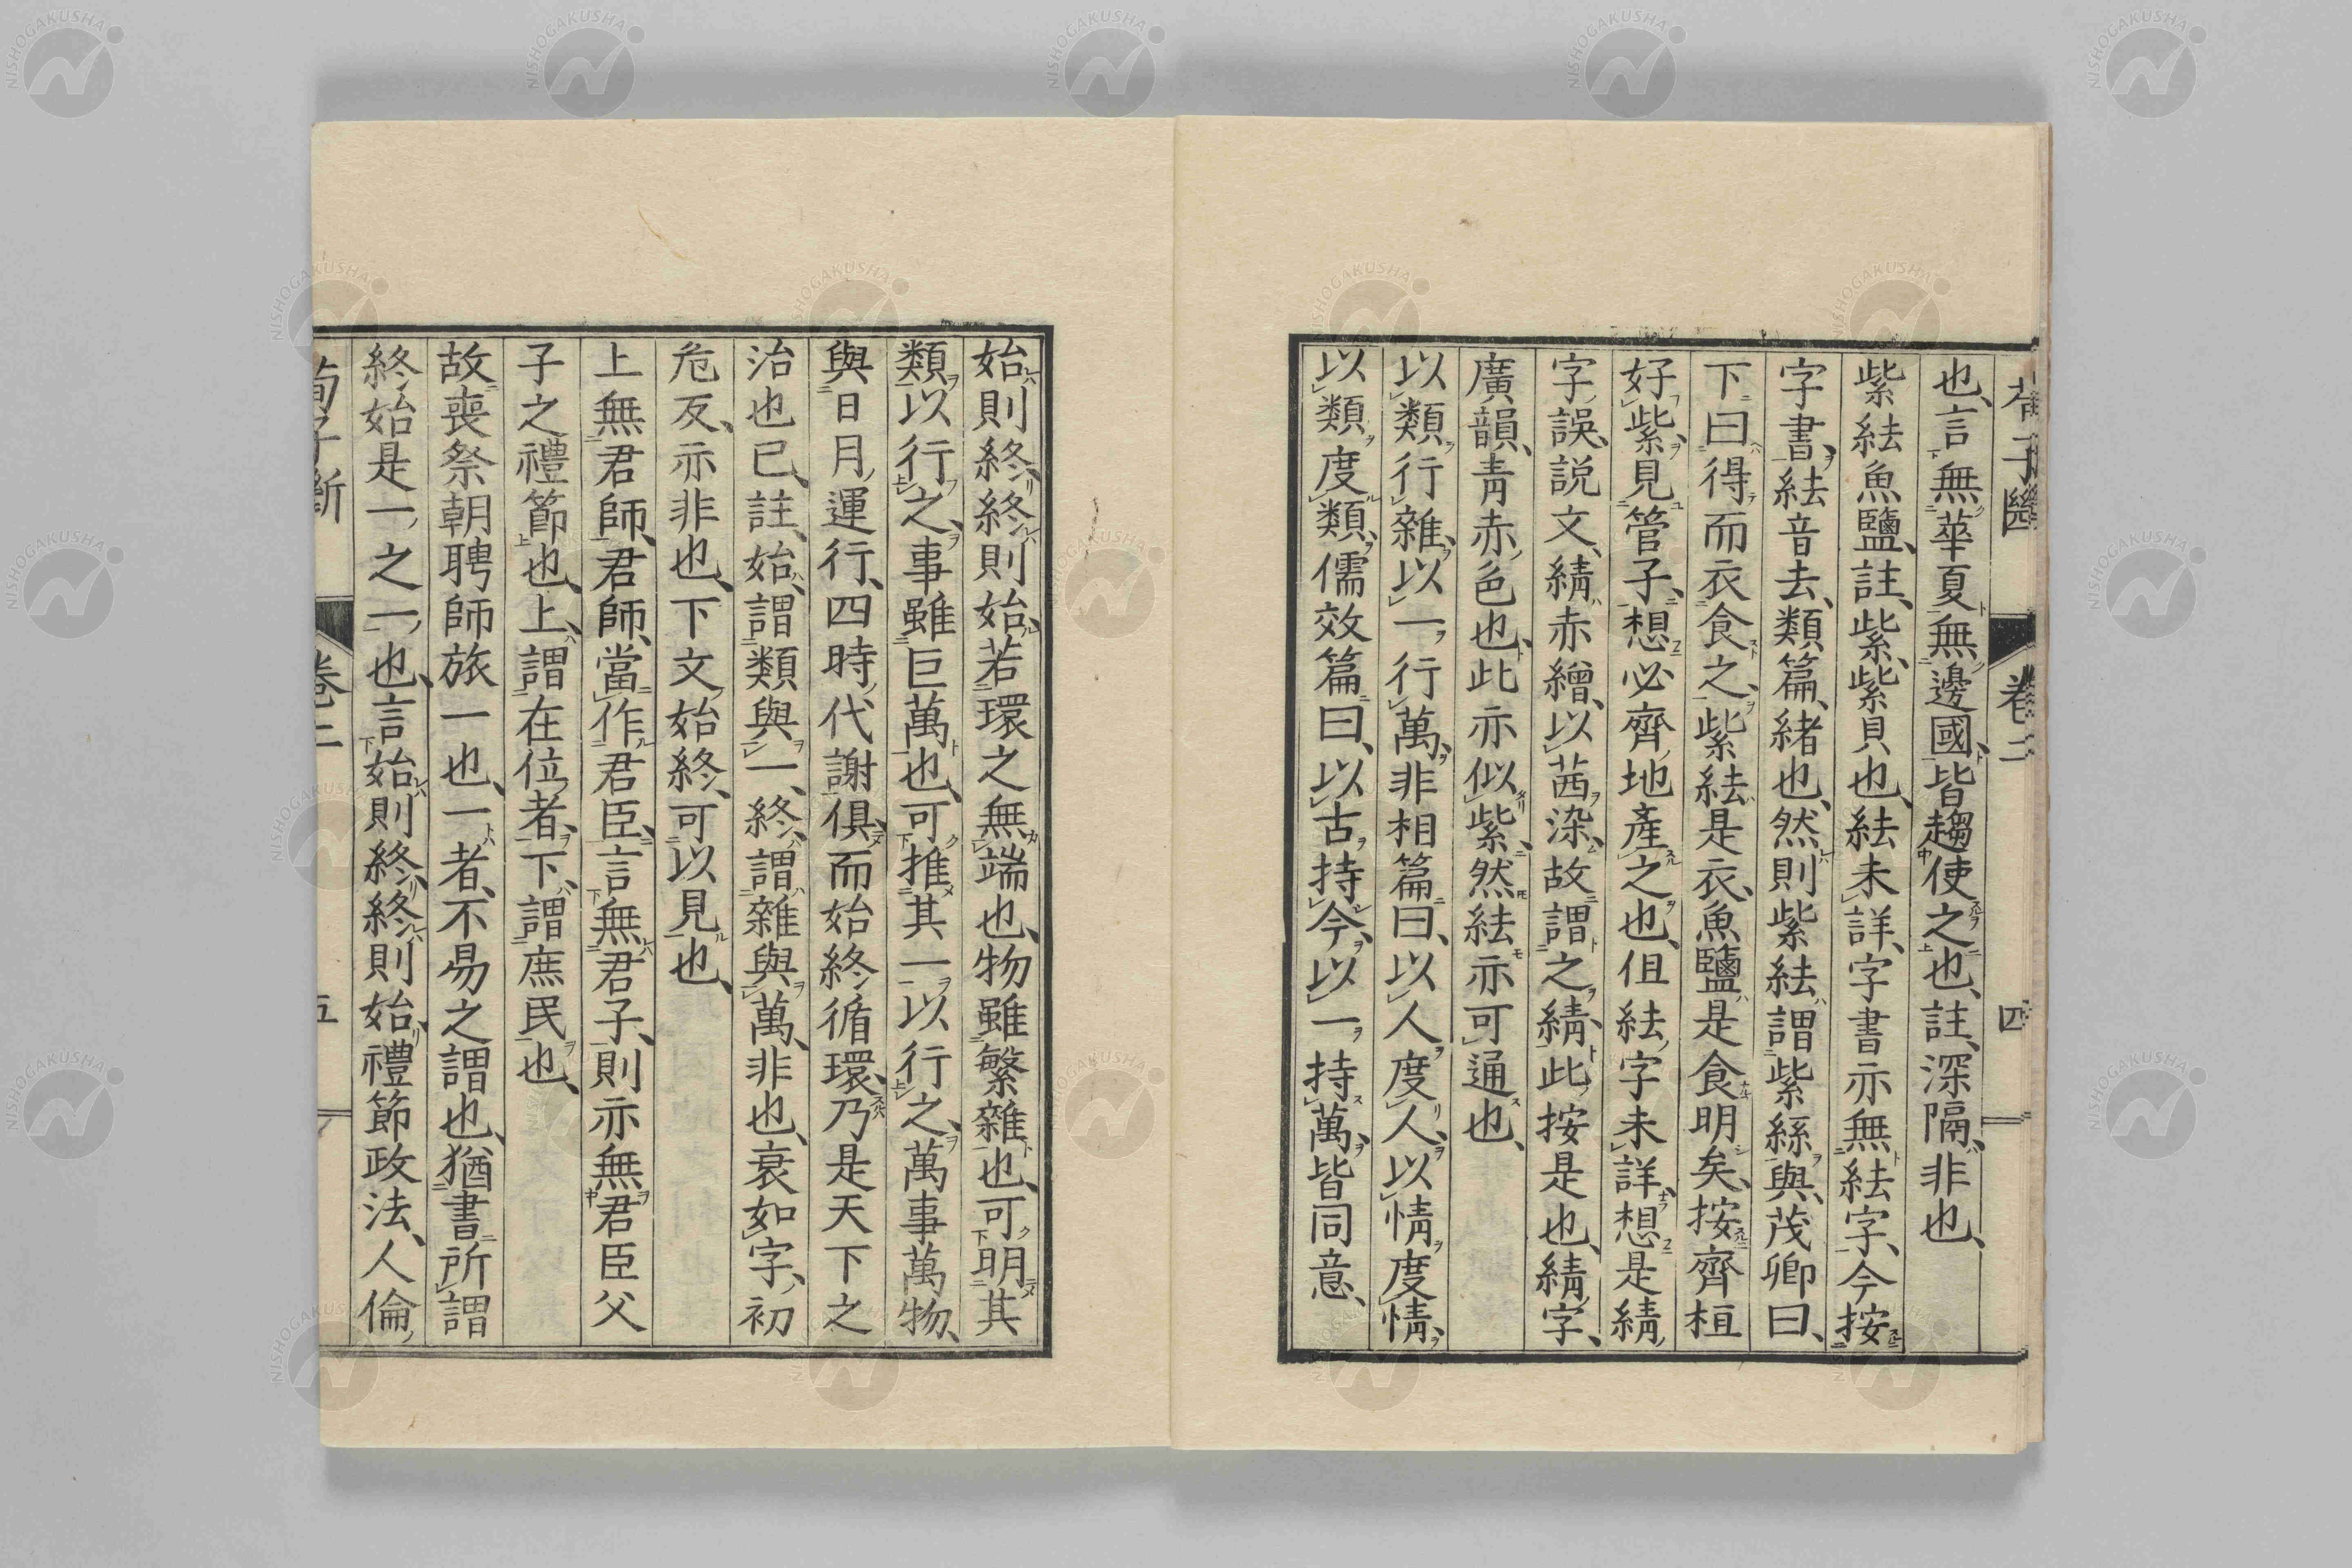 也、言無華夏無邊國、皆趨使之也、註、深隔、非也、
紫紶魚鹽、註、紫、紫貝也、紶未詳、字書亦無紶字、今按
字書、紶音去、類篇、緒也、然則紫紶謂紫絲與、茂卿曰、
下曰得而衣食之、紫紶是衣、魚鹽是食明矣、按齊桓
好紫、見管子、想必齊地產之也、但紶字未詳、想是綪
字誤、説文、綪赤繒、以茜染、故謂之綪、此按是也、綪字、
廣韻、青赤色也、此亦似紫、然紶亦可通也、
以類行雜、以一行萬、非相篇曰、以人度人、以情度情、
以類度類、儒效篇曰、以古持今、以一持萬、皆同意、
卷二
四
始則終、終則始、若環之無端也、物雖繁雜也、可明其
類以行之、事雖巨萬也、可推其一以行之、萬事萬物、
與日月運行、四時代謝俱、而始終循環、乃是天下之
治也已、註、始、謂類與一、終、謂雜與萬、非也、衰如字、初
危反、亦非也、下文始終、可以見也、
上無君師、君師、當作君臣、言無君子、則亦無君臣父
子之禮節也、上、謂在位者、下、謂庶民也、
故喪祭朝聘師旅一也、一者、不易之謂也、猶書所謂
終始是一之一也、言始則終、終則始、禮節政法、人倫
荀子斷
卷二
五
NISHOGAKUSHA